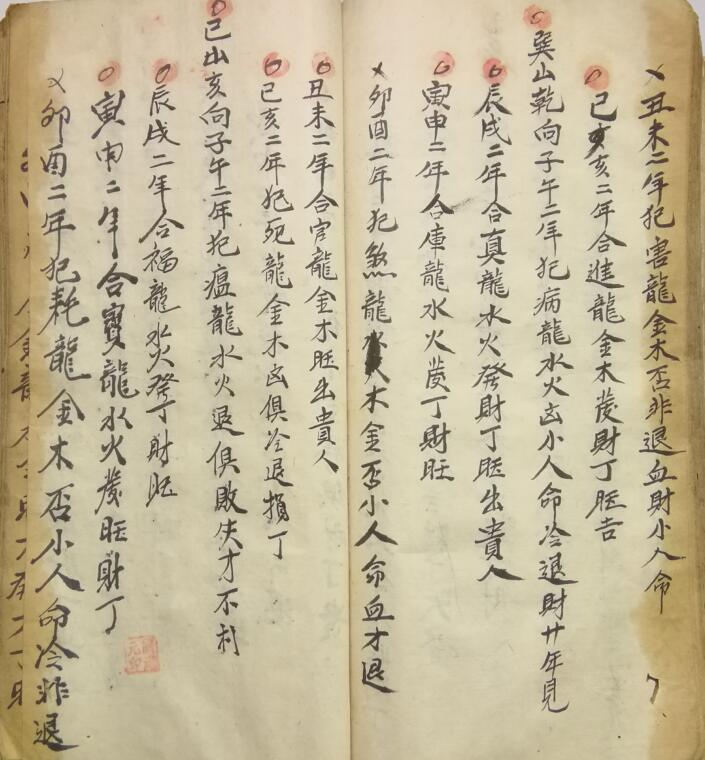 丑未二年犯害龍金木否非退血財小人命
巳亥二年合進龍金木發財丁旺吉
巽山乾向子午二年犯病龍水火凶小人命冷退財廿年見
辰戌二年合真龍水火發財丁旺出貴人
寅申二年合庫龍水火發丁財旺
卯酉二年犯煞龍木金否小人命血才退
丑未二年合官龍金木旺出貴人
巳亥二年犯死龍金木凶俱冷退損丁
巳山亥向子午二年犯瘟龍水火退俱敗失才不利
辰戌二年合福龍水火發丁財旺
寅申二年合寶龍水火發旺財丁
卯酉二年犯耗龍金木否小人命冷非退